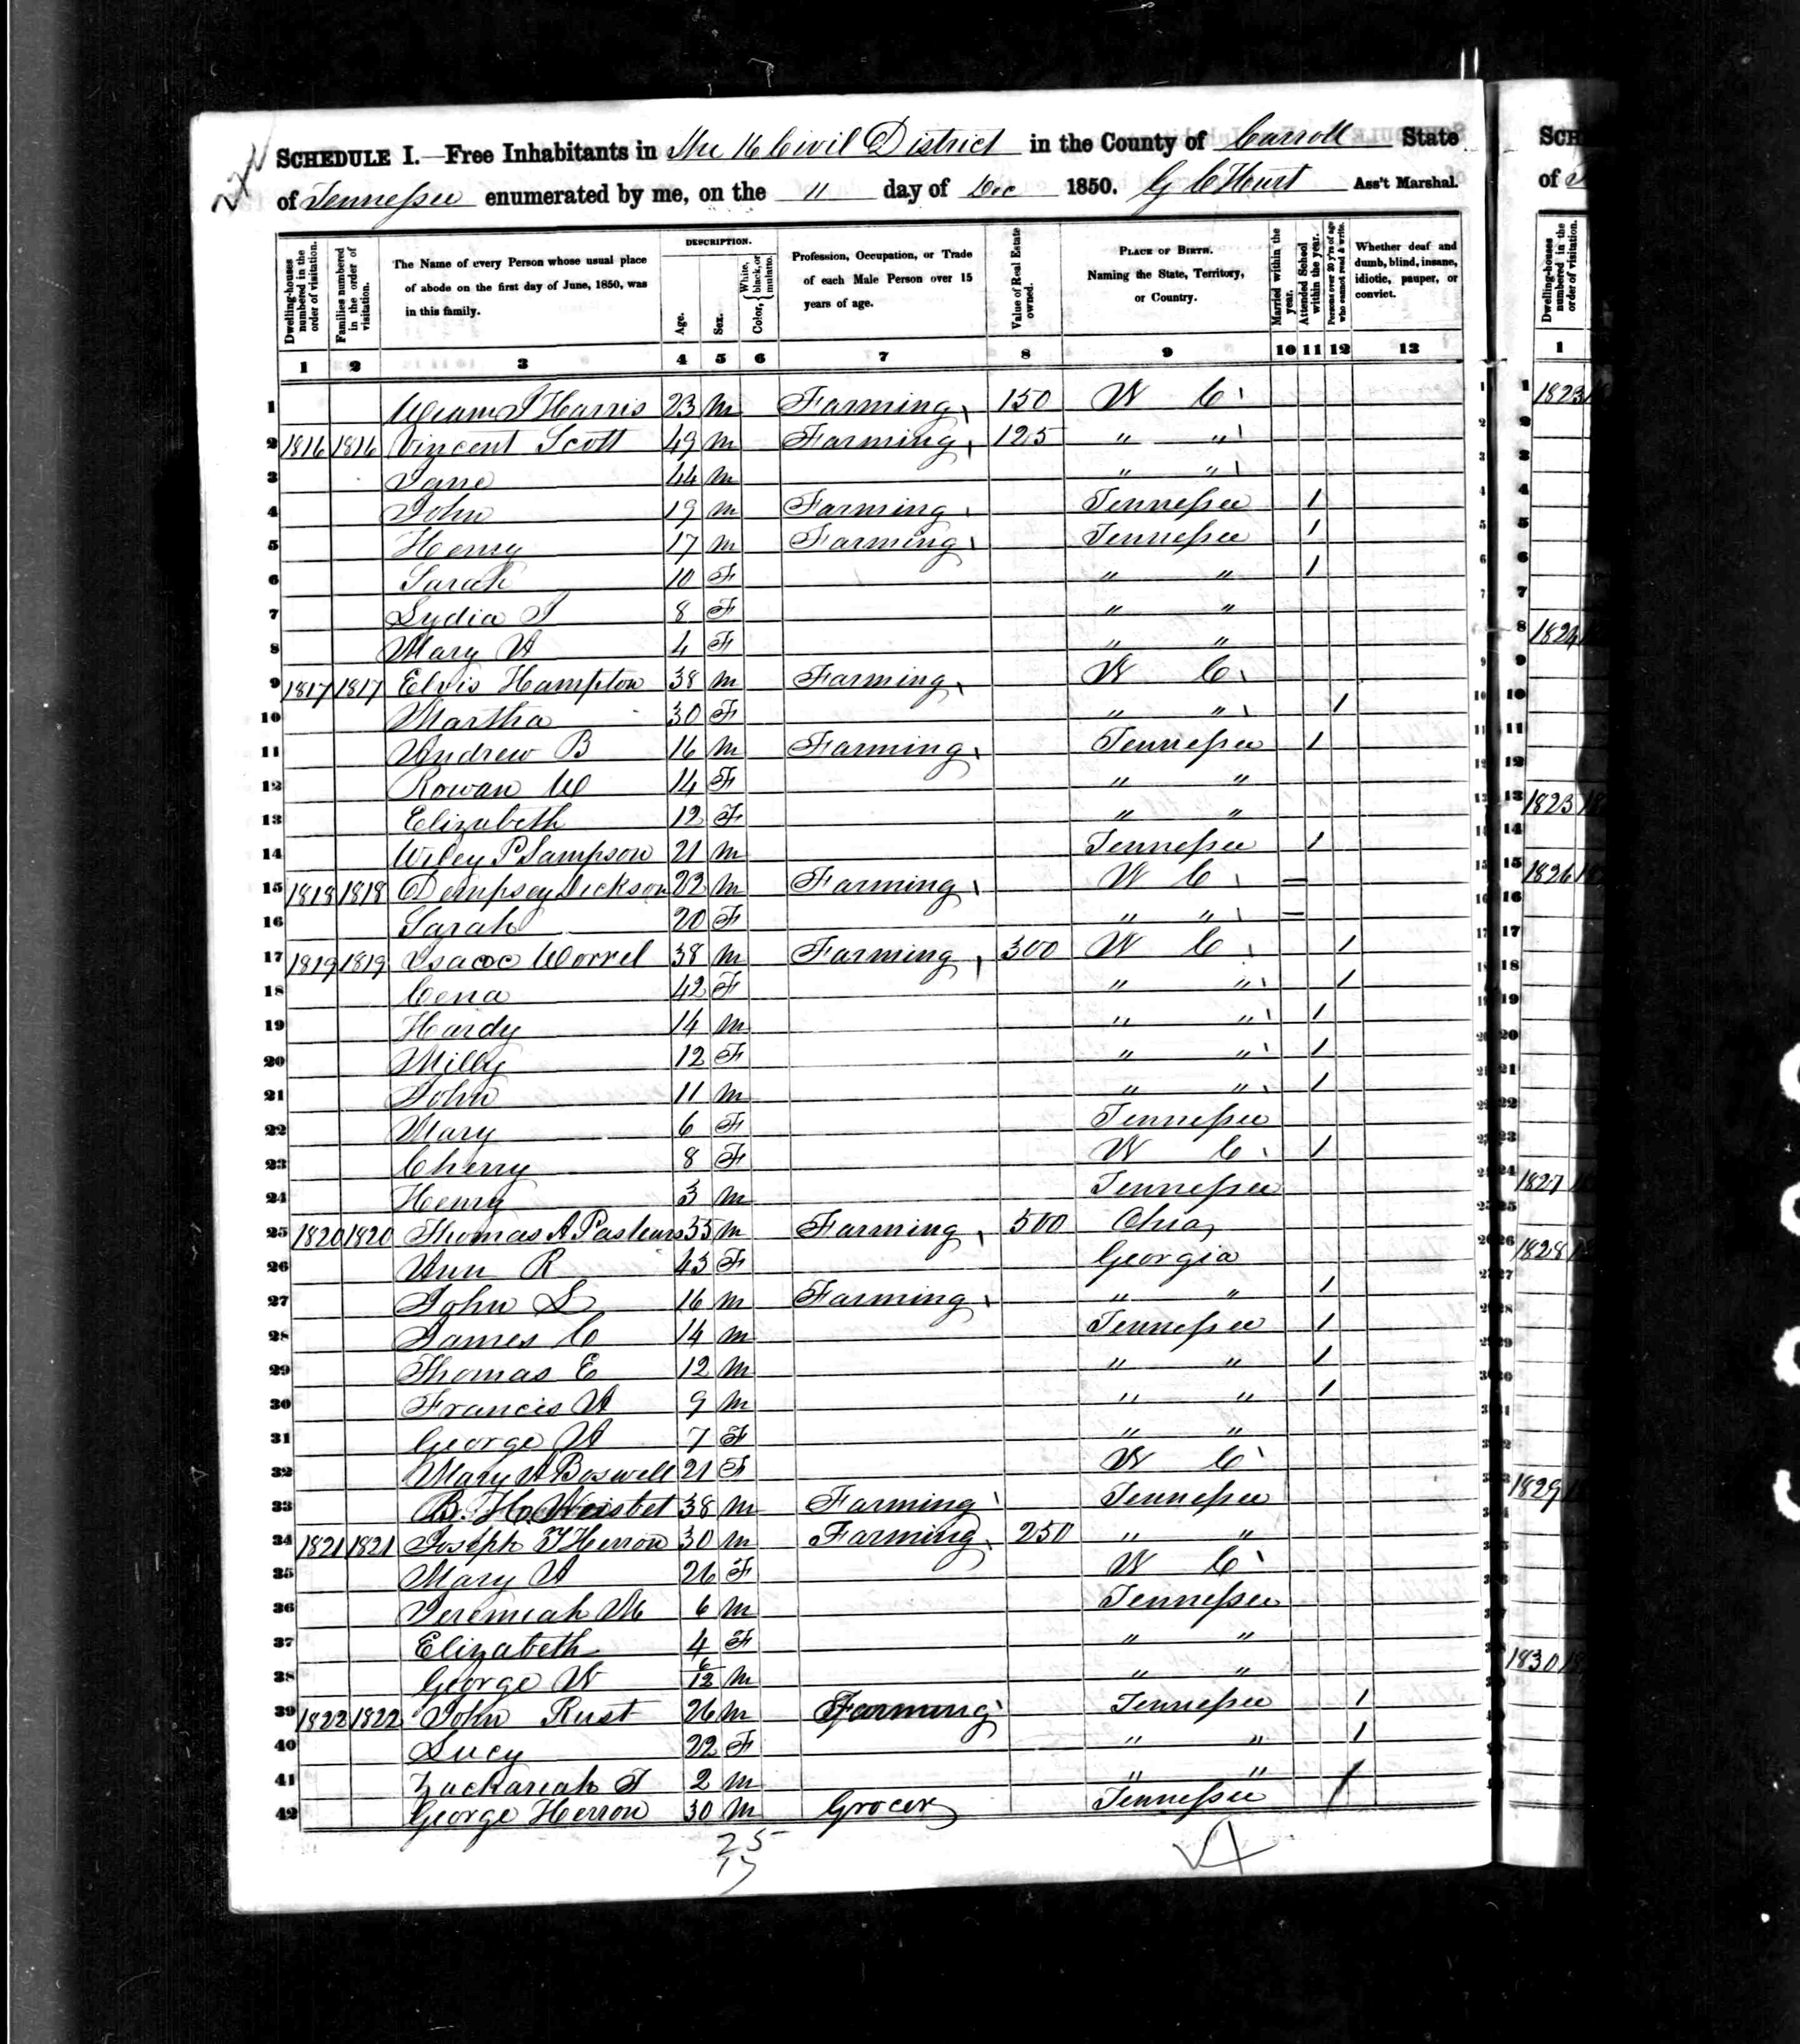 SCHEDULE I.—Free Inhabitants in The 16 Civil District in the County of Carroll State
of Tennessee enumerated by me, on the 11 day of Dec 1850. G C Hurt Ass't Marshal.
Dwelling-houses numbered in the order of visitation.
Families numbered in the order of visitation.
The Name of every Person whose usual place of abode on the first day of June, 1850, was in this family.
DESCRIPTION.
Age.
Sex.
Color, White, black, or mulatto.
Profession, Occupation, or Trade of each Male Person over 15 years of age.
Value of Real Estate owned.
PLACE OF BIRTH. Naming the State, Territory, or Country.
Married within the year.
Attended School within the year.
Persons over 20 y'rs of age who cannot read & write.
Whether deaf and dumb, blind, insane, idiotic, pauper, or convict.
1 2 3 4 5 6 7 8 9 10 11 12 13
1 Harris 23 M Farming 150 N C 1
2 1816 1816 Vincent Scott 49 M Farming 125 " " 2
3 Jane 44 M " " 3
4 John 19 M Farming Tennessee / 4
5 Henry 17 M Farming Tennessee / 5
6 Sarah 10 F " " / 6
7 Lydia J 8 F " " 7
8 Mary A 4 F " " 8
9 1817 1817 Elvis Hampton 38 M Farming N C 9
10 Martha 30 F " " / 10
11 Andrew B 16 M Farming Tennessee / 11
12 Rowan W 14 F " "
13 Elizabeth 12 F " "
14 Wiley P Sampson 21 M Tennessee /
15 1818 1818 Dempsey Dickson 22 M Farming N C —
16 Sarah 20 F " " —
17 1819 1819 Isaac Worrel 38 M Farming 300 N C /
18 Cena 42 F " " /
19 Hardy 14 M " " /
20 Milly 12 F " " /
21 John 11 M " " /
22 Mary 6 F Tennessee
23 Cherry 8 F N C /
24 Henry 3 M Tennessee
25 1820 1820 Thomas A 35 M Farming 500 Ohio
26 Ann R 43 F Georgia
27 John L 16 M Farming " " /
28 James C 14 M Tennessee /
29 Thomas E 12 M " " /
30 Francis A 9 M " " /
31 George A 7 F " "
32 Mary A Boswell 21 F N C
33 B. H. 38 M Farming Tennessee
34 1821 1821 Joseph F Herron 30 M Farming 250 " "
35 Mary A 26 F N C
36 Jeremiah M 6 M Tennessee
37 Elizabeth 4 F " "
38 George W 6/12 M " "
39 1822 1822 John Rust 26 M Farming Tennessee /
40 Lucy 22 F " " /
41 Zachariah T 2 M " "
42 George Herron 30 M Grocer Tennessee /
25
17
SCH
of T
Dwelling-houses numbered in the order of visitation.
1
1 1823
2
3
4
5
6
7
8 1824
9
10
11
12
13 1825
14
15 1826
16
17
18
19
20
21
22
23
24 1827
25
26 1828
1829
1830